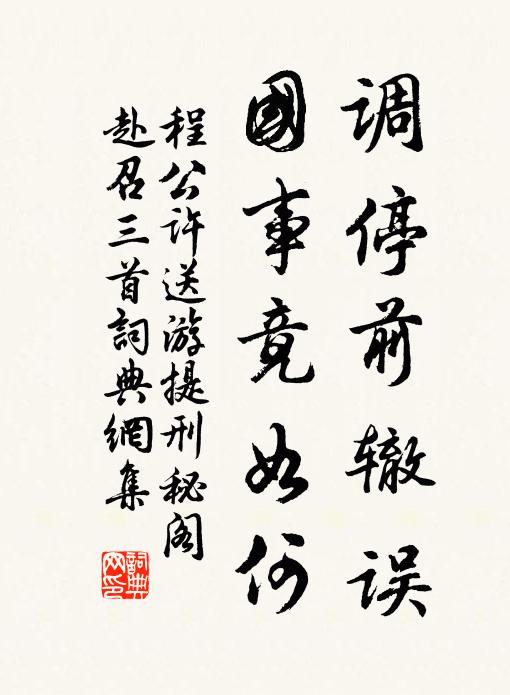 调停前辙误
國事竟如何
程公许送游提刑秘阁
赴召三首詞典網集
詞典
网印